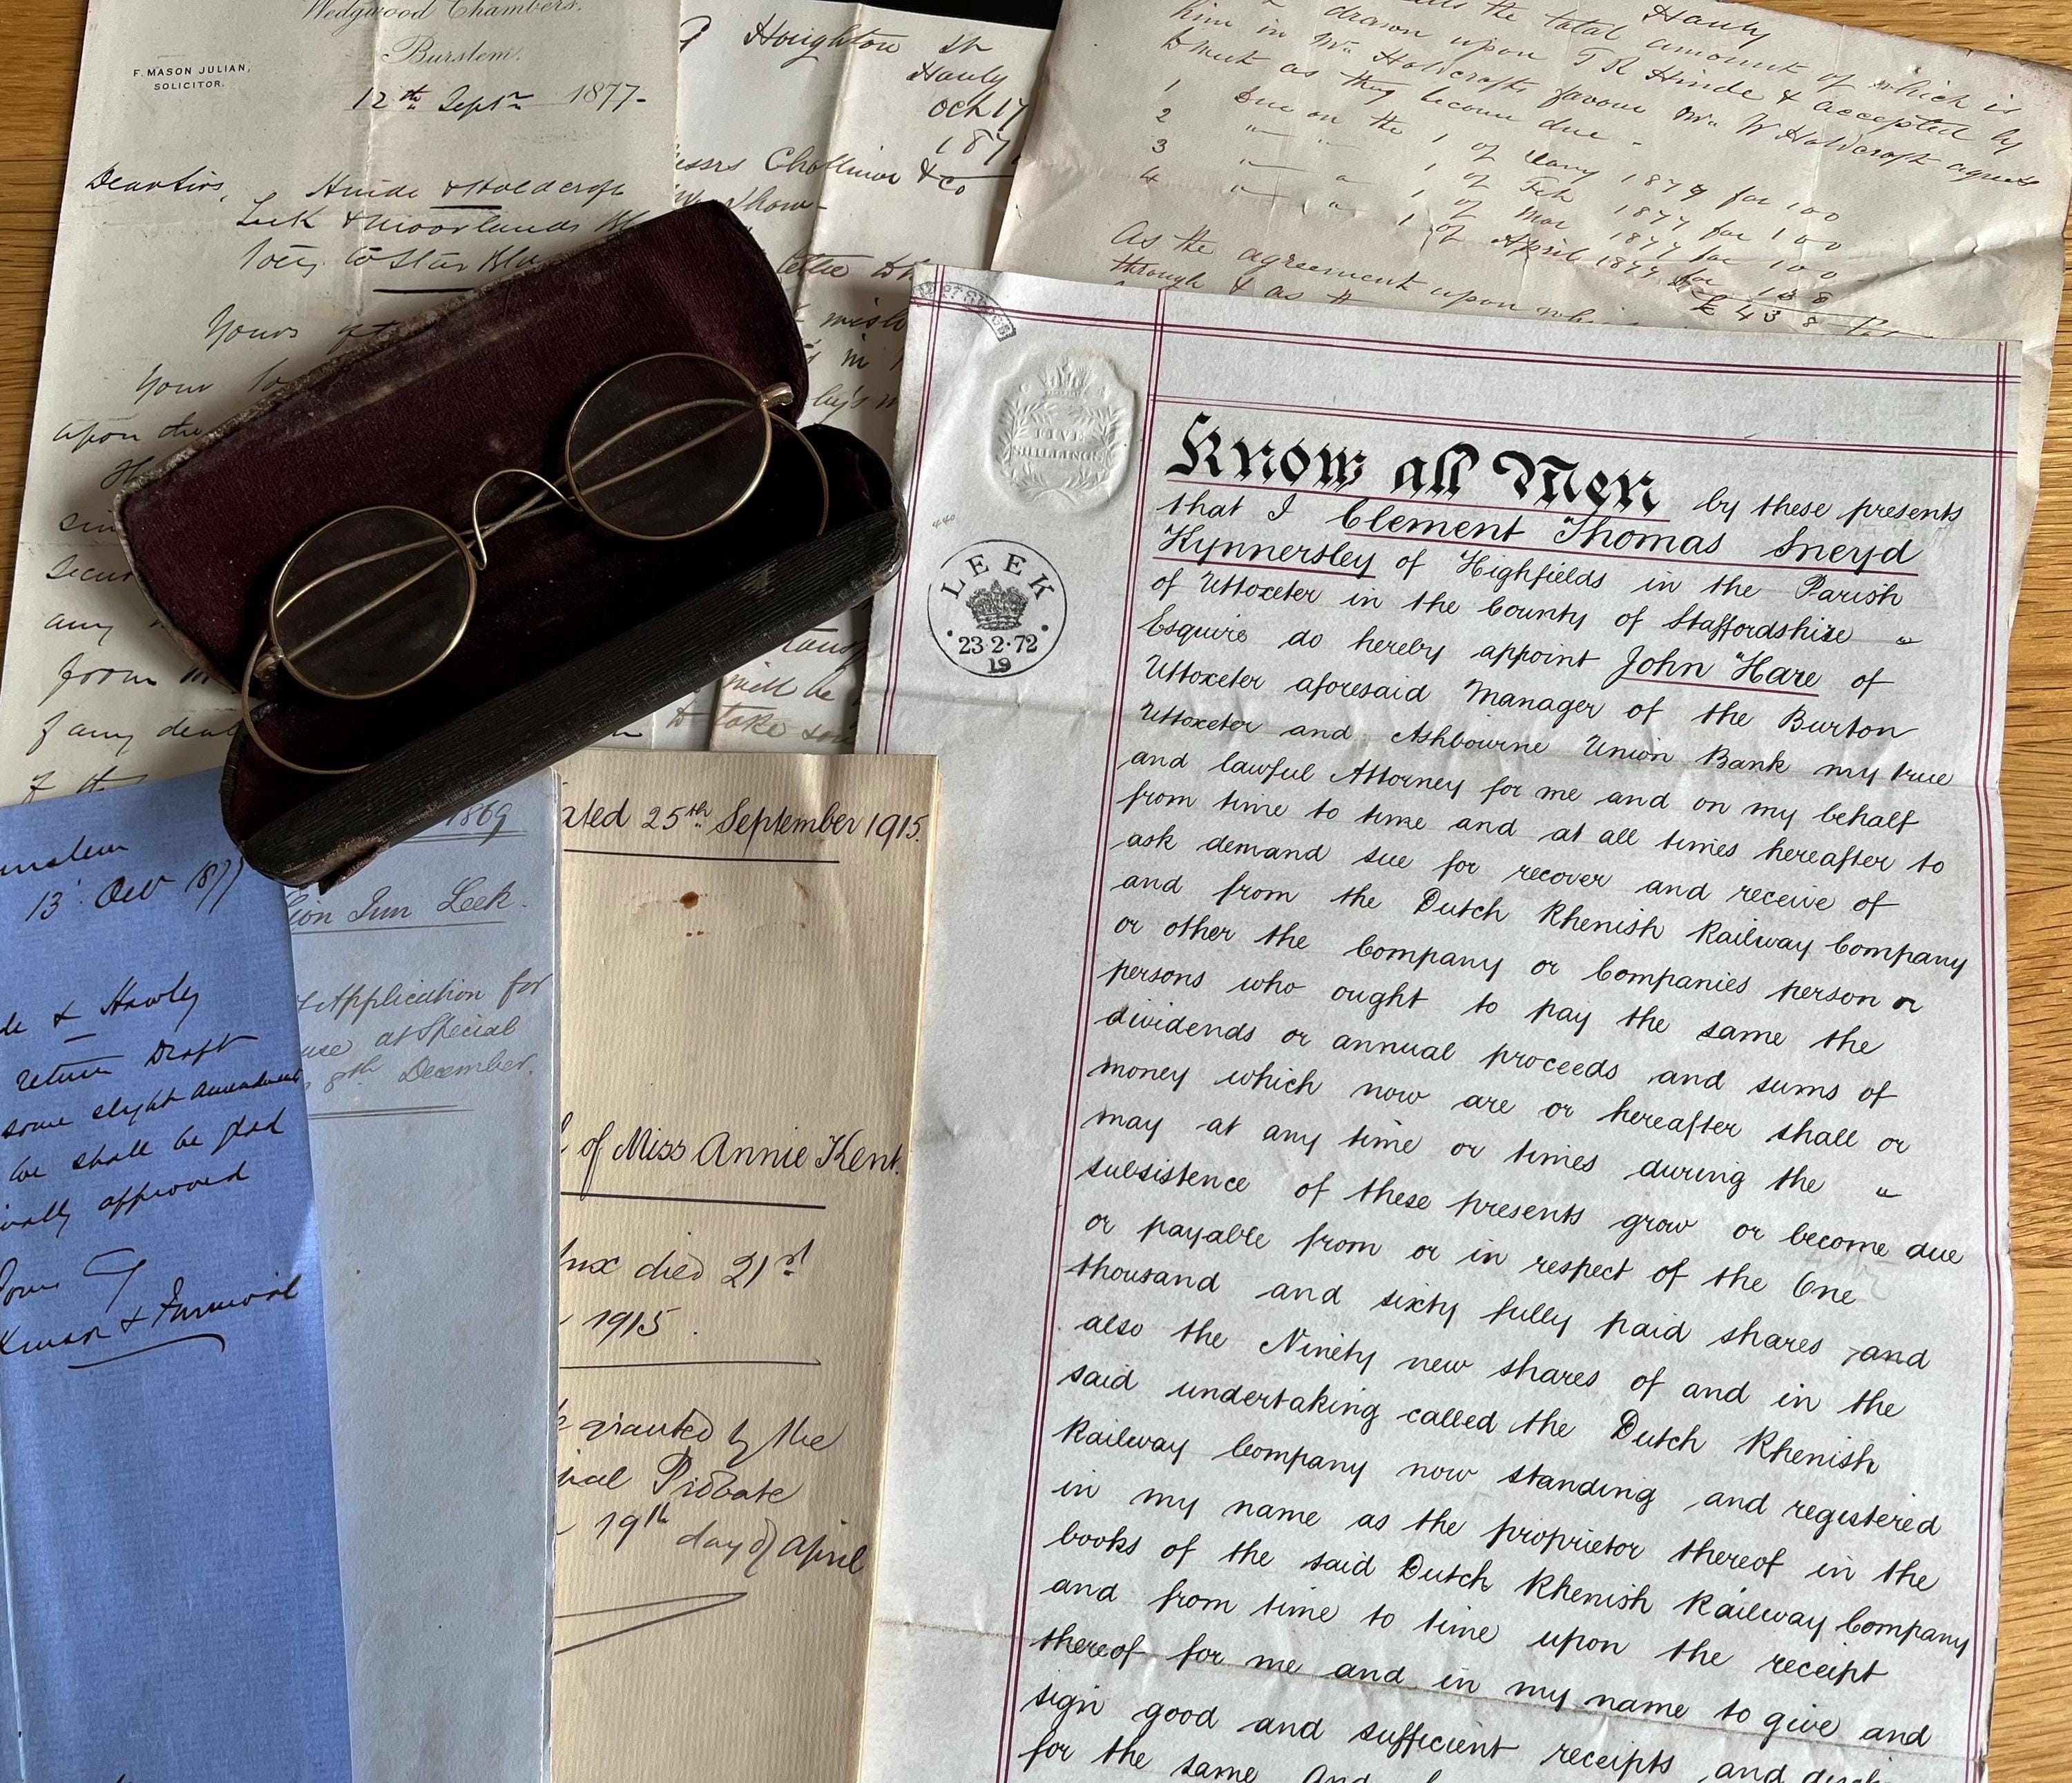 Wedgwood Chambers.
Burslem.
F. MASON JULIAN,
SOLICITOR.
12th Septr 1877-
Dear Sirs,
Hinde & Holdcroft
Leek & Moorlands
to Star
Yours
Your
upon the
any
from
of any
Houghton St
Hanly
Oct 17
187
Challinor & Co
mish
in
will be
to take
Hanly
the total amount of which is
drawn upon T R Hinde & accepted by
him in Mr Holdcrofts favour Mr W Holdcroft agrees
to meet as they become due -
1 Due on the 1 of Jany 1877 for 100
2 " " 1 of Feb 1877 for 100
3 " " 1 of Mar 1877 for 100
4 " " 1 of April 1877 for 138
£ 438
As the agreement upon which
through & as
FIVE
SHILLINGS
LEEK
23·2·72
19
Know all Men by these presents
that I Clement Thomas Sneyd
Kynnersley of Highfields in the Parish
of Uttoxeter in the County of Staffordshire "
Esquire do hereby appoint John Hare of
Uttoxeter aforesaid Manager of the Burton
Uttoxeter and Ashbourne Union Bank my true
and lawful Attorney for me and on my behalf
from time to time and at all times hereafter to
ask demand sue for recover and receive of
and from the Dutch Rhenish Railway Company
or other the Company or Companies person or
persons who ought to pay the same the
dividends or annual proceeds and sums of
money which now are or hereafter shall or
may at any time or times during the "
subsistence of these presents grow or become due
or payable from or in respect of the One
thousand and sixty fully paid shares and
also the Ninety new shares of and in the
said undertaking called the Dutch Rhenish
Railway Company now standing and registered
in my name as the proprietor thereof in the
books of the said Dutch Rhenish Railway Company
and from time to time upon the receipt
thereof for me and in my name to give and
sign good and sufficient receipts and
for the same And
13 Oct 187
& Hawley
return Draft
some slight amendment
we shall be glad
approved
& Furnival
1869
Lion Inn Leek.
Application for
at Special
8th December.
ated 25th September 1915.
of Miss Annie Kent.
died 21st
1915.
granted by the
Probate
19th day of April